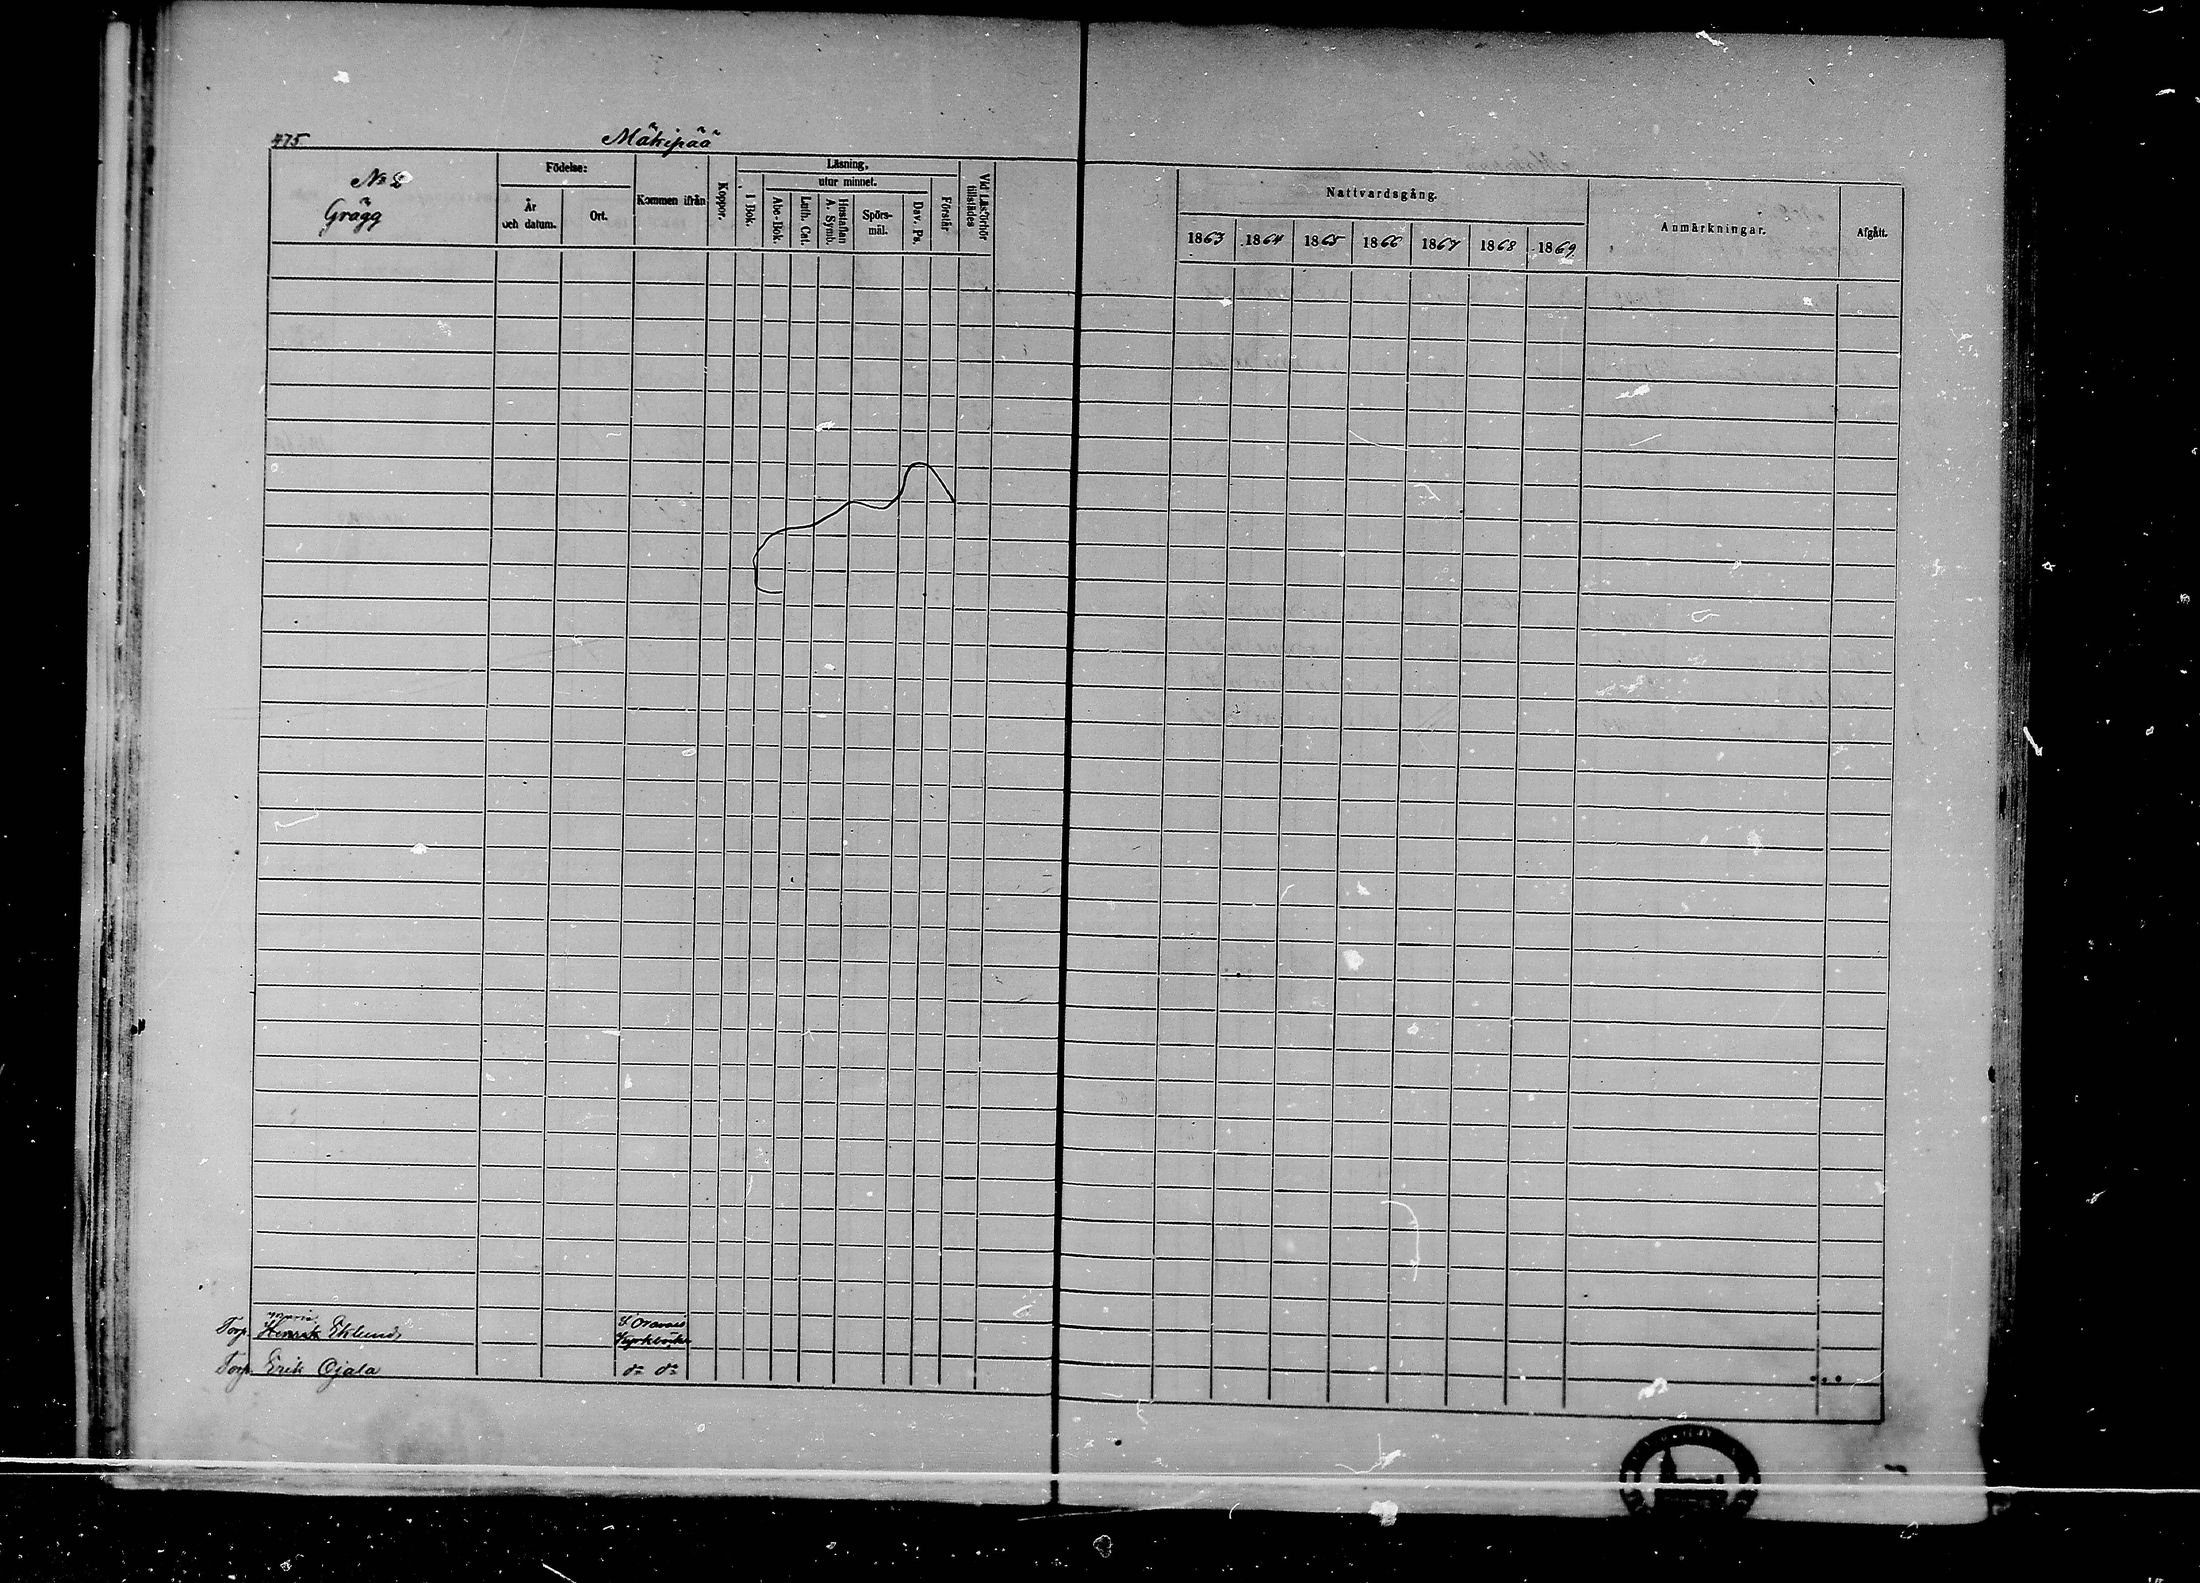 475
Mäkipää
No 2
Grägg
Födelse:
År
och datum.
Ort.
Kommen ifrån
Koppor.
Läsning,
I Bok.
utur minnet.
Abc-Bok.
Luth. Cat.
Hustaflan
A. Symb.
Spörs-
mål.
Dav. Ps.
Förstår
Vid Läsförhör
tillstädes
Nattvardsgång.
1863 1864 1865 1866 1867 1868 1869
Anmärkningar.
Afgått.
Torp. Henrik Eklund
Oravais
Torp. Erik Ojala
do do